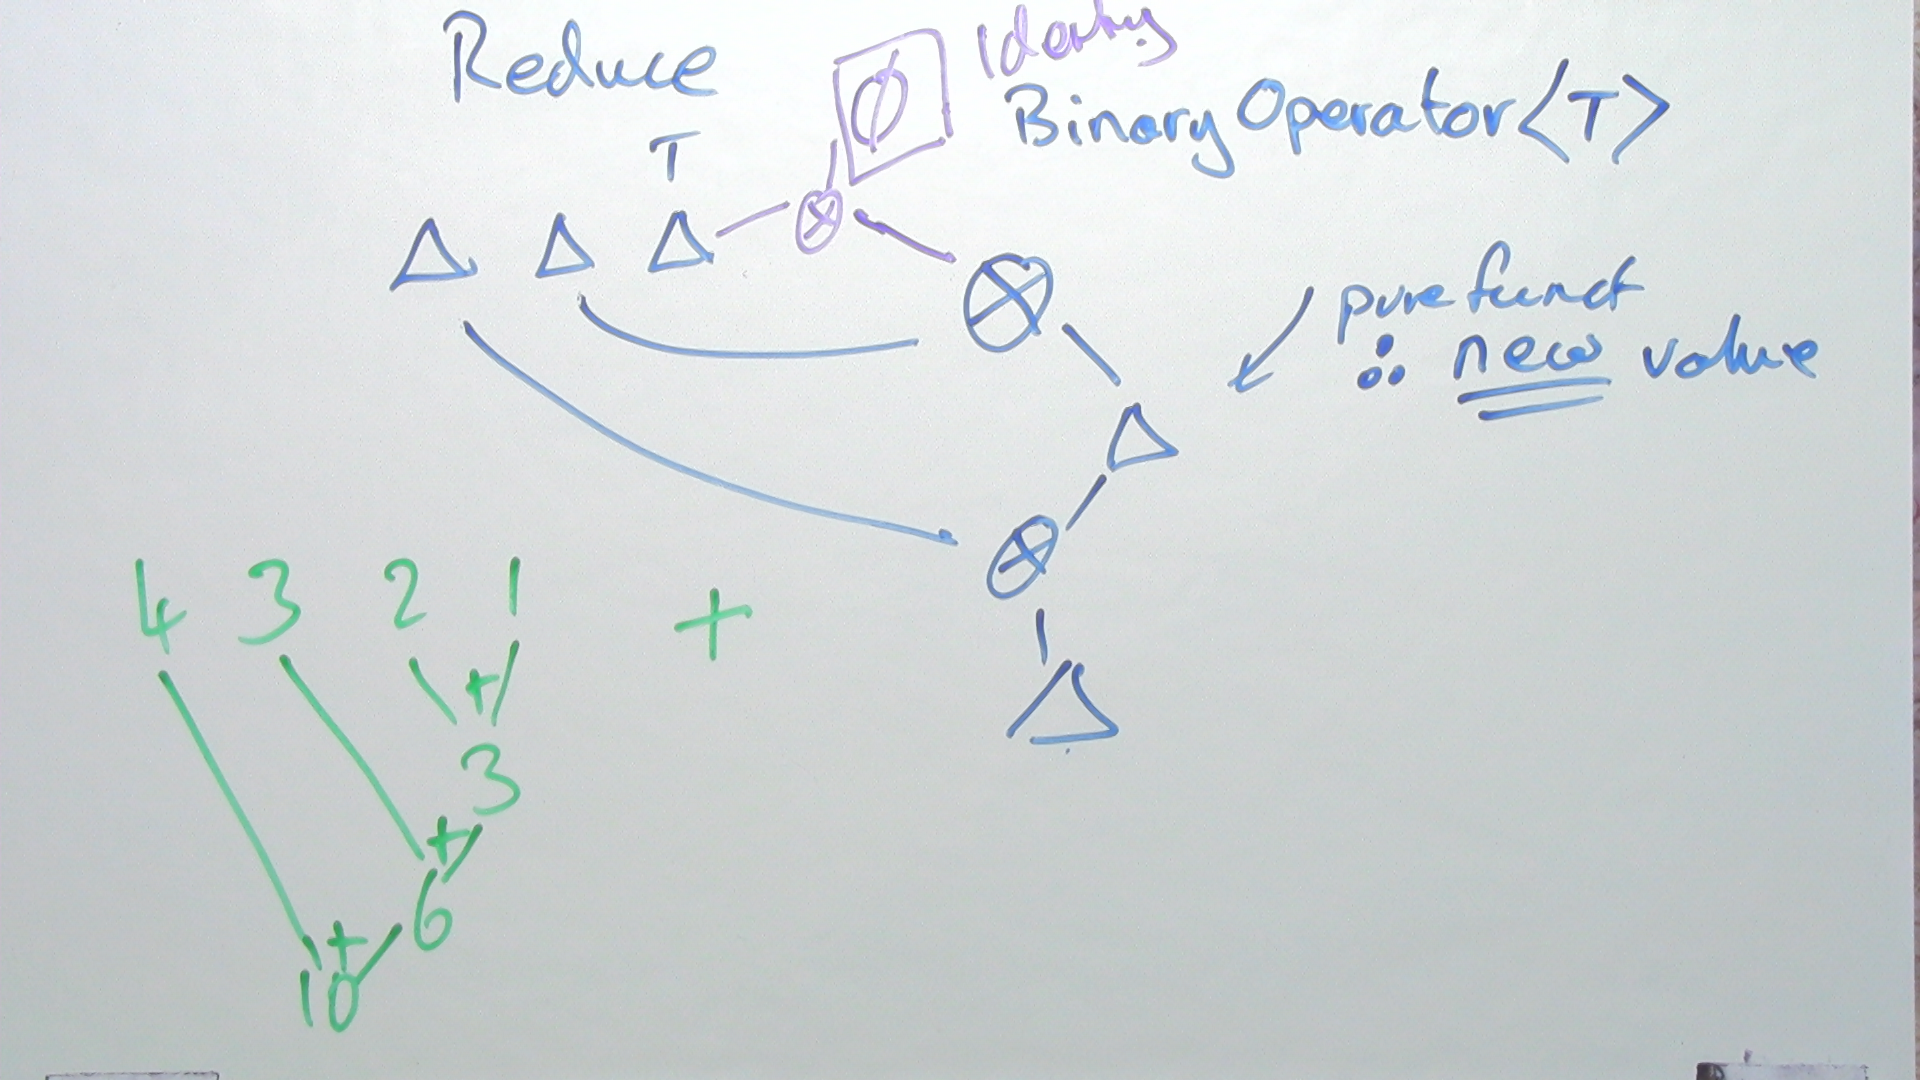 Reduce
Ø Identity
BinaryOperator<T>
T
pure funct
∴ new value
4 3 2 1 +
+
3
+
6
+
10